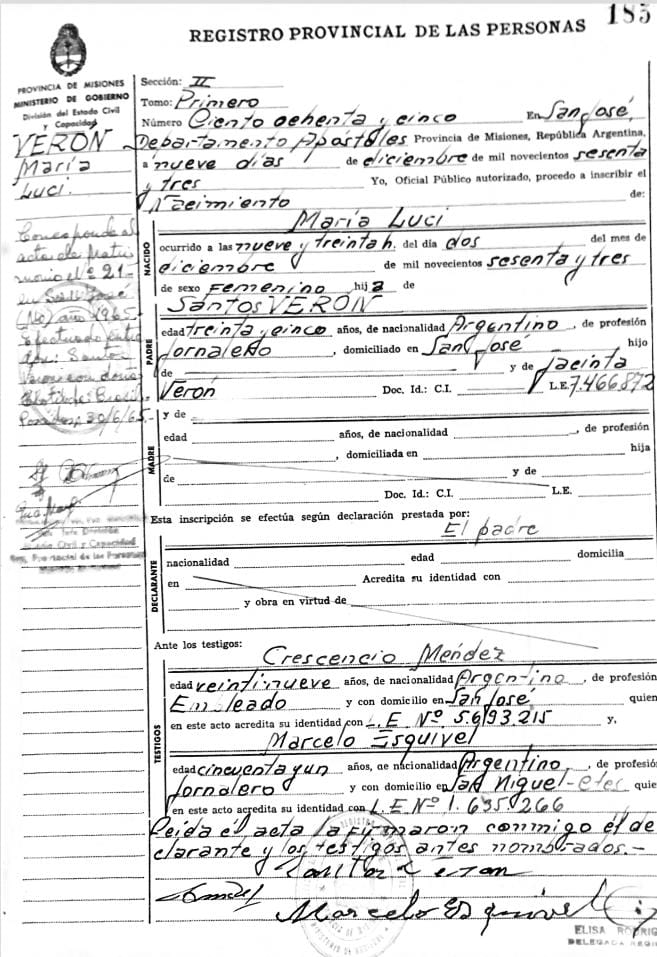 185
REGISTRO PROVINCIAL DE LAS PERSONAS
PROVINCIA DE MISIONES
MINISTERIO DE GOBIERNO
División del Estado Civil
y Capacidad
VERÓN
María
Luci.
Corresponde al
acta de matri
monio Nº 21-
en San José
(Ms) año 1965.
Efectuado entre
don: Santos
Verón con doña
Posadas, 30/6/65-
Sección: II
Tomo: Primero
Número Ciento ochenta y cinco En San José,
Departamento Apóstoles Provincia de Misiones, República Argentina,
a nueve días de diciembre de mil novecientos sesenta
y tres Yo, Oficial Público autorizado, procedo a inscribir el
Nacimiento de:
NACIDO
María Luci
ocurrido a las nueve y treinta h. del día dos del mes de
diciembre de mil novecientos sesenta y tres
de sexo Femenino hija de
PADRE
Santos VERÓN
edad treinta y cinco años, de nacionalidad Argentino, de profesión
Jornalero, domiciliado en San José hijo
de y de Jacinta
Verón Doc. Id.: C.I. L.E. 7.466.872
MADRE
y de
edad años, de nacionalidad , de profesión
, domiciliada en hija
de y de
Doc. Id.: C.I. L.E.
Esta inscripción se efectúa según declaración prestada por:
DECLARANTE
El padre
nacionalidad edad domicilia
en Acredita su identidad con
y obra en virtud de
Ante los testigos:
TESTIGOS
Crescencio Méndez
edad veintinueve años, de nacionalidad Argentino, de profesión
Empleado y con domicilio en San José quien
en este acto acredita su identidad con L.E. Nº 5.693.215 y,
Marcelo Esquivel
edad cincuenta y un años, de nacionalidad Argentino, de profesió
Jornalero y con domicilio en San Miguel quie
en este acto acredita su identidad con L.E Nº 1.635.266
Leida el acta la firmaron conmigo el de
clarante y los testigos antes nombrados.-
Marcelo Esquivel
ELISA RODRIG
DELEGADA REGI